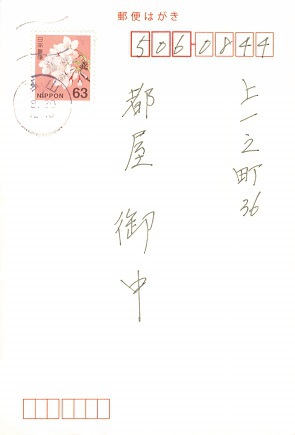 郵便はがき
506-0844
上一之町36
都屋 御中
日本郵便
NIPPON 63